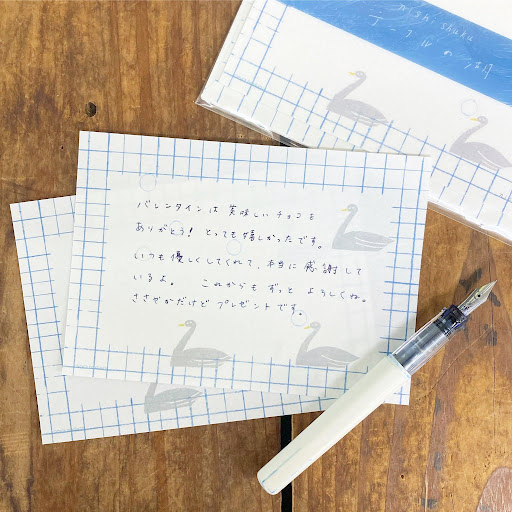 nishi shuku
バレンタインは 美味しい チョコを
ありがとう! とっても嬉しかったです。
いつも優しくしてくれて、本当に 感謝して
いるよ。 これからも ずっと よろしくね。
ささやかだけど プレゼントです。